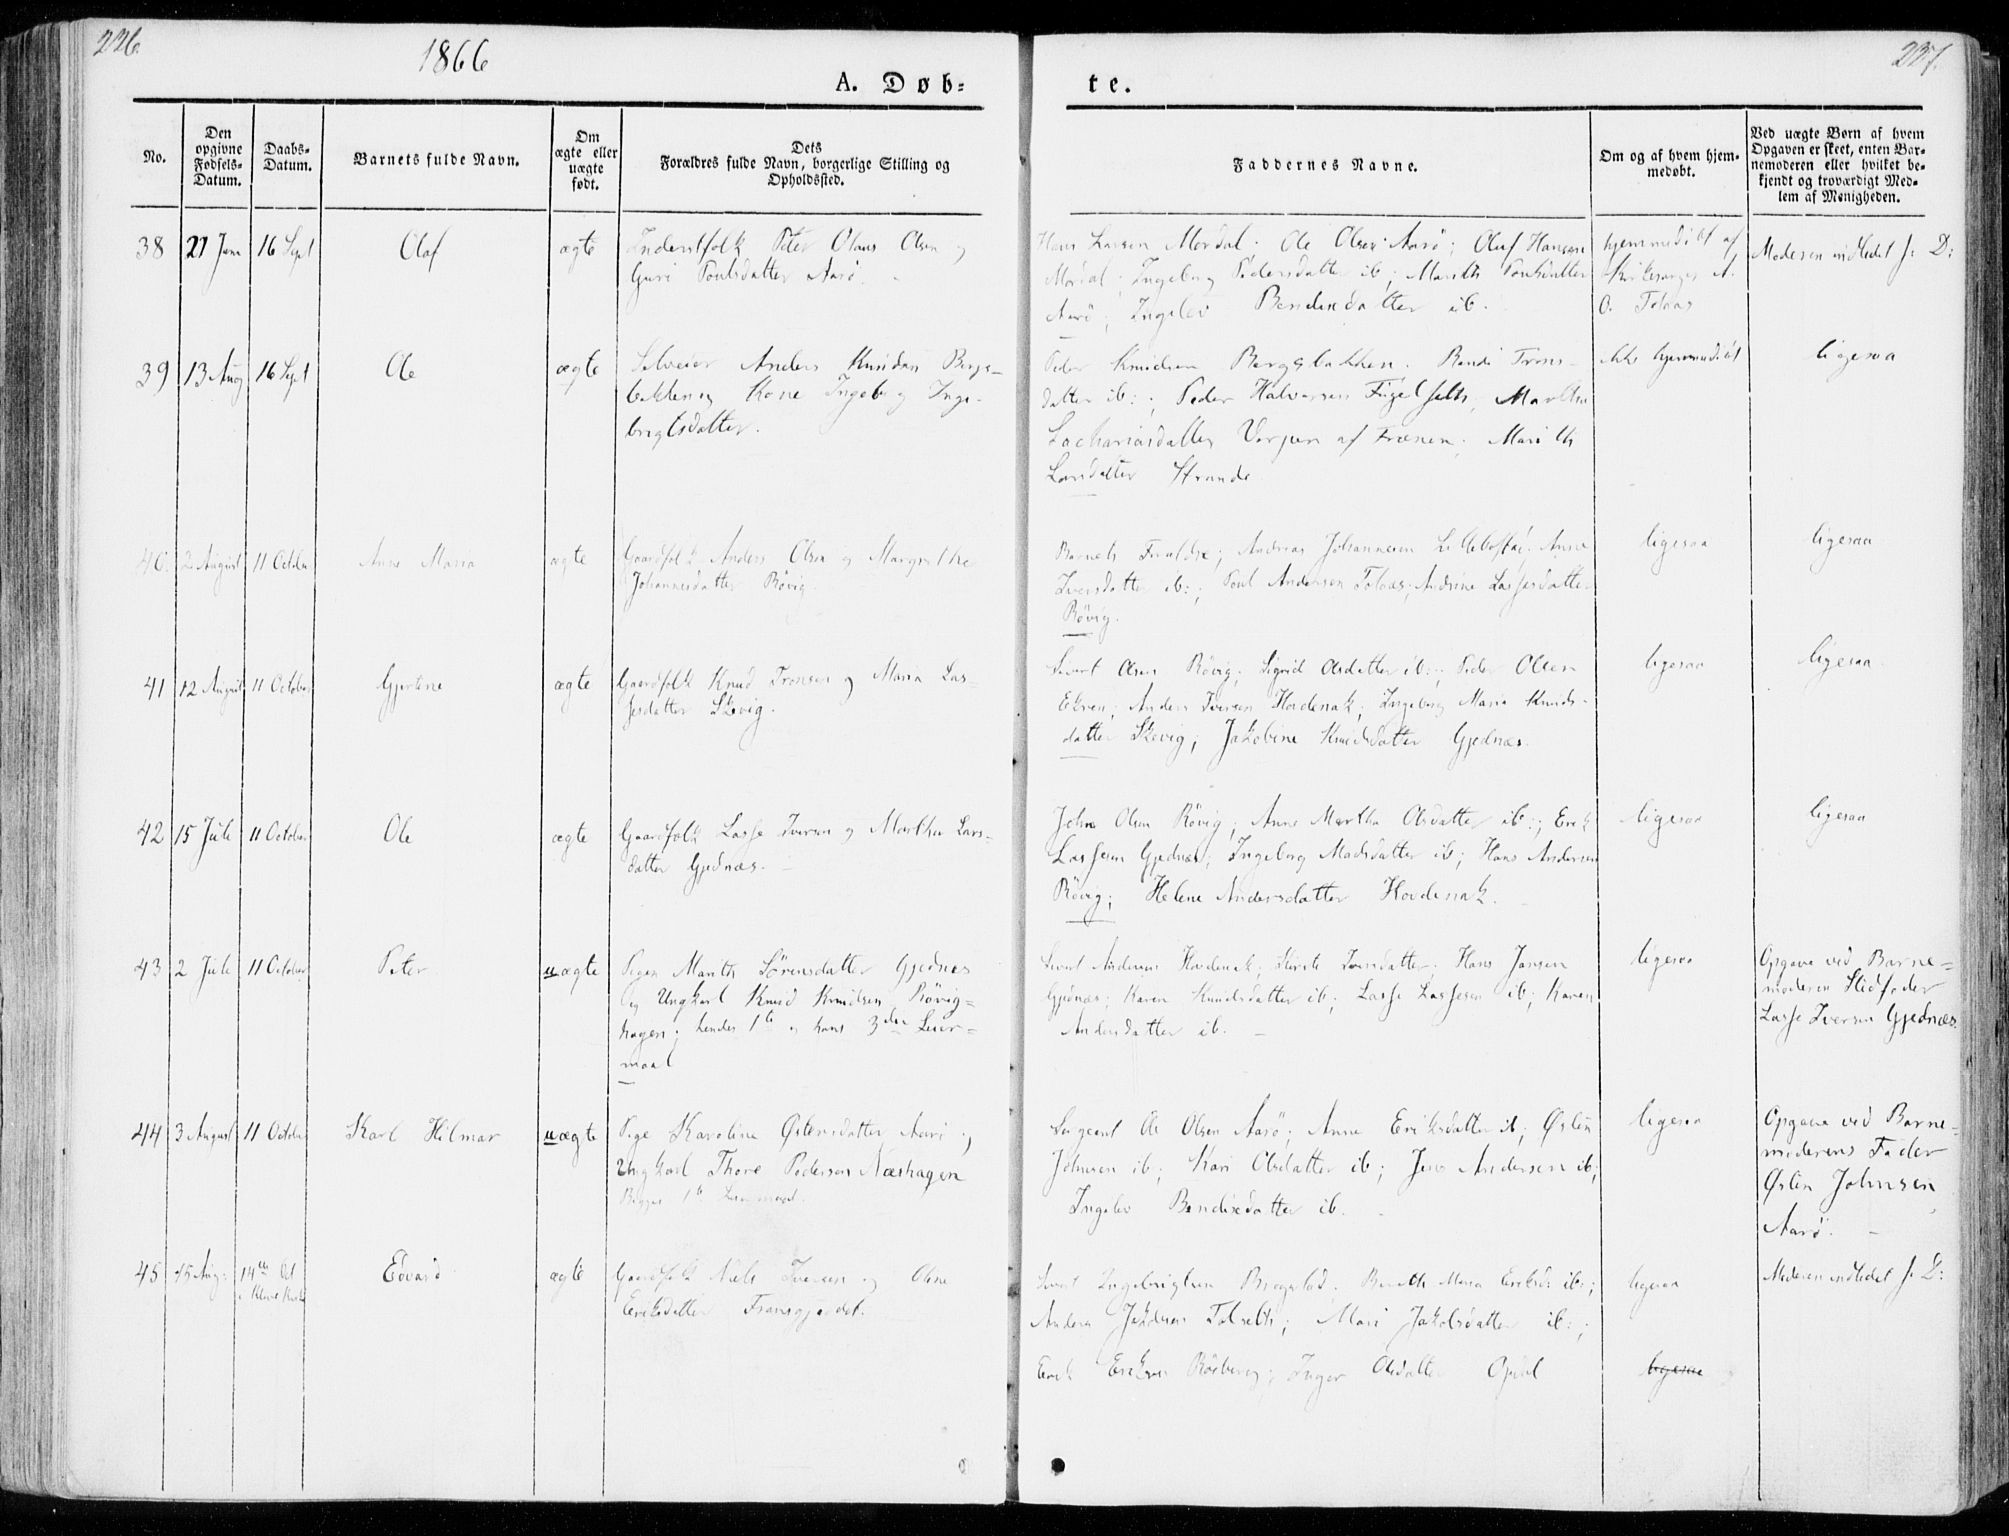 226.
1866
A. Døb=
te.
237.
No.
Den opgivne Fødsels-Datum.
Daabs-Datum.
Barnets fulde Navn.
Om ægte eller uægte født.
Dets
Forældres fulde Navn, borgerlige Stilling og
Opholdssted.
Faddernes Navne.
Om og af hvem hjem-
medøbt.
Ved uægte Børn af hvem
Opgaven er skeet, enten Bar-
nemoderen eller hvilket be-
kjendt og troværdigt Med-
lem af Menigheden.
38 21 Juni 16 Sept Olaf ægte Inderstfolk Peter Olaus Olsen og
Guri Poulsdatter Aarö.
Hans Larsen Mordal; Ole Olsen Aarö; Oluf Hansen
Mordal; Ingeborg Pedersdatter ib; Marith Poulsdatter
Aarö; Ingelev Bendixdatter ib.
hjemmedöbt af
Kirkesanger A.
O. Tolaas
Moderen indledet s. D:
39 13 Aug 16 Sept Ole ægte Selveier Anders Knudsen Bergs-
bakken og Kone Ingeborg Inge-
brigtsdatter.
Peder Knudsen Bergsbakken. Randi Trons-
datter ib:; Peder Halvorsen Fugelseth; Martha
Zachariasdatter Varpen af Frænen; Marith
Larsdatter Strande
ikke hjemmedöbt
ligesaa
40. 2 August 11 October Anne Maria ægte Gaardfolk Anders Olsen og Margrethe
Johannesdatter Rövig.
Barnets Forældre; Andreas Johannesen; Anne
Iversdatter ib:; Poul Andersen Tolaas; Andrine Lassesdatter
Rövig.
ligesaa
ligesaa
41 12 August 11 October Gjertine ægte Gaardfolk Knud Tronsen og Maria Las-
sesdatter Skevig.
Sivert Olsen Rövig; Sigrid Olsdatter ib:; Peder Olsen
Ekren; Anders Iversen Hovdenak; Ingeborg Maria Knuds-
datter Skevig; Jakobine Knudsdatter Gjednæs.
ligesaa
ligesaa
42 15 Juli 11 October Ole ægte Gaardfolk Lasse Iversen og Martha Lars-
datter Gjednæs.
John Olsen Rövig; Anne Martha Olsdatter ib:; Erik
Lassesen Gjednæs; Ingeborg Madsdatter ib; Hans Andersen
Rövig; Helene Andersdatter Hovdenak.
ligesaa
ligesaa
43 2 Juli 11 October Peter uægte Pigen Marith Sörensdatter Gjednæs
og Ungkarl Knud Knudsen Rövig-
hagen; hendes 1te og hans 3die Leier-
maal
Sivert Andersen Hovdenak; Iversdatter; Hans Jansen
Gjednæs; Karen Knudsdatter ib; Lasse Lassesen ib; Karen
Andersdatter ib.
ligesaa
Opgave ved Barne-
moderen Stedfader
Lasse Iversen Gjednæs.
44 3 August 11 October Karl Hilmar uægte Pige Karoline Østensdatter Aarö og
Ungkarl Thore Pedersen Næshagen
Begges 1te Leiermaal.
Sergeant Ole Olsen Aarö; Anne Eriksdatter ib; Østen
Johnsen ib; Kari Olsdatter ib; Jens Andersen ib;
Ingelev Bendixdatter ib.
ligesaa
Opgave ved Barne-
moderens Fader
Østen Johnsen
Aarö.
45 15 Aug: 14de Oct
i Kirke
Edvard ægte Gaardfolk Niels Iversen og Oline
Eriksdatter Fransgjærdet.
Sivert Ingebrigtsen; Maria Eriksd: ib:;
Anders Jakobsen; Mari Jakobsdatter ib:;
Erik Eriksen Röisberg; Inger Olsdatter Opdöl
ligesaa
ligesaa
Moderen indledet s. D: